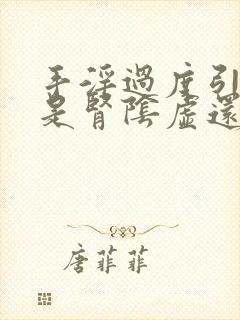 手淫過度引
是腎陰虛還
唐菲菲